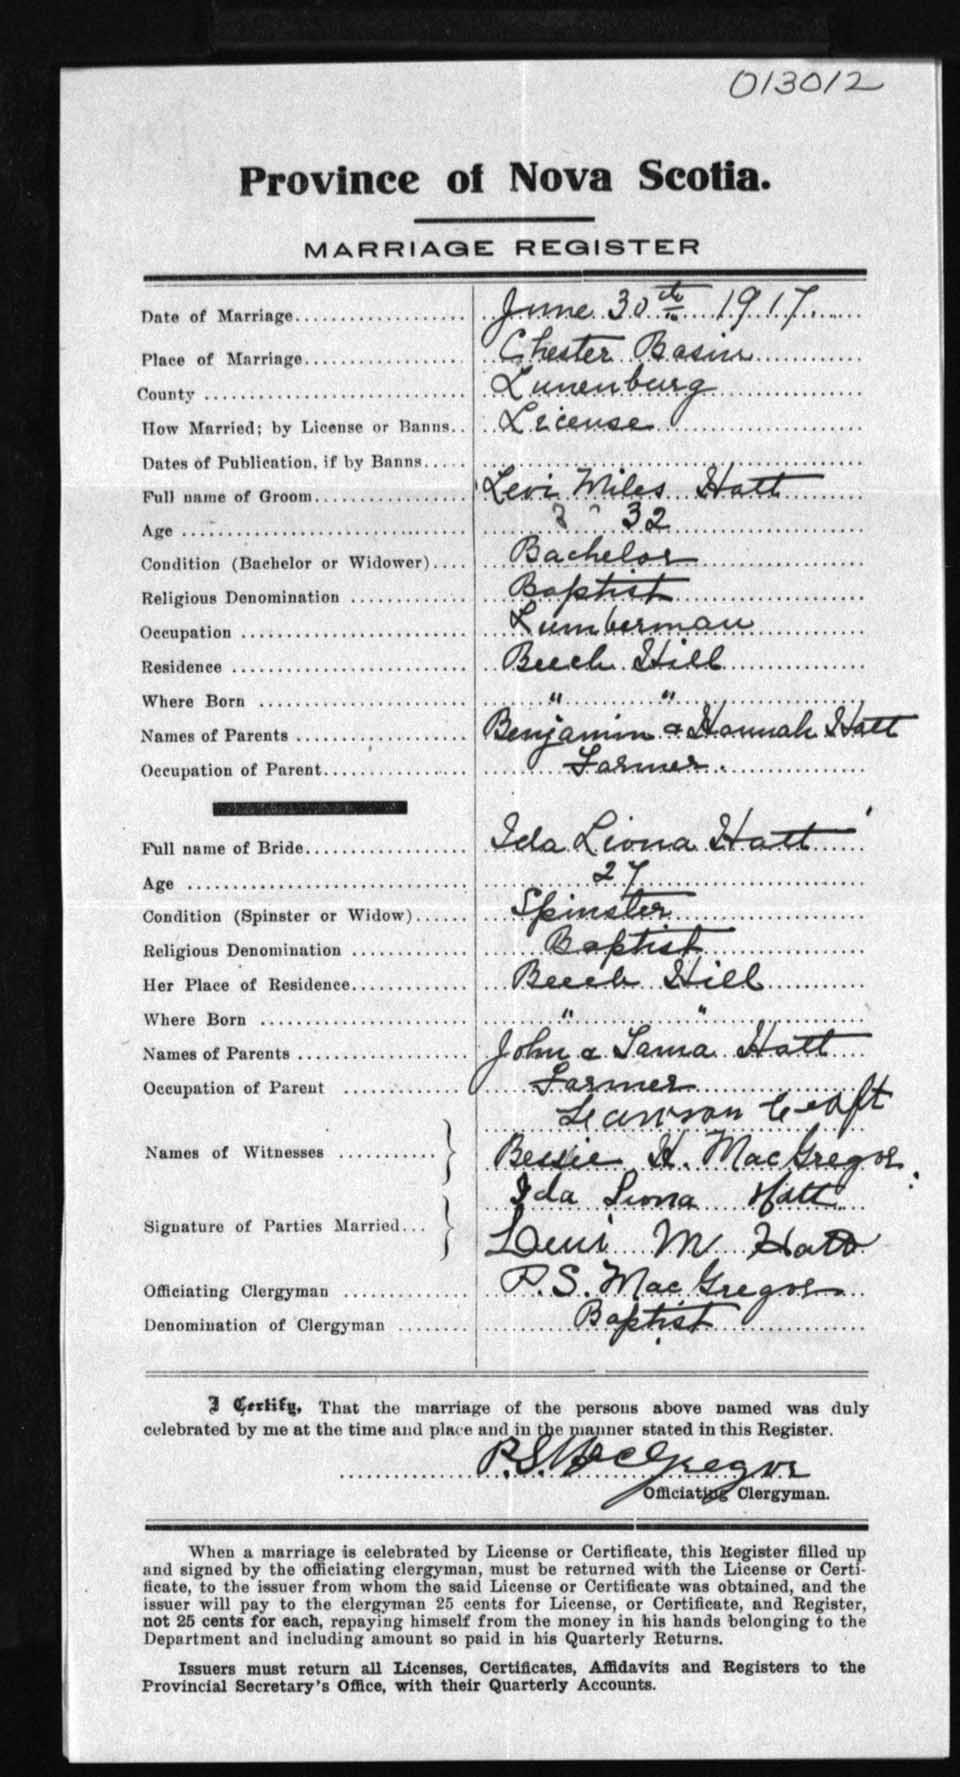 013012
Province of Nova Scotia.
MARRIAGE REGISTER
Date of Marriage June 30th 1917
Place of Marriage Chester Basin
County Lunenburg
How Married; by License or Banns License
Dates of Publication, if by Banns
Full name of Groom Levi Miles Hatt
Age 32
Condition (Bachelor or Widower) Bachelor
Religious Denomination Baptist
Occupation Lumberman
Residence Beech Hill
Where Born " "
Names of Parents Benjamin & Hannah Hatt
Occupation of Parent Farmer
Full name of Bride Ida Liona Hatt
Age 27
Condition (Spinster or Widow) Spinster
Religious Denomination Baptist
Her Place of Residence Beech Hill
Where Born " "
Names of Parents John & Hatt
Occupation of Parent Farmer
Names of Witnesses
Bessie H. MacGregor
Signature of Parties Married Ida Liona Hatt
Levi M Hatt
Officiating Clergyman P.S. MacGregor
Denomination of Clergyman Baptist
I Certify, That the marriage of the persons above named was duly
celebrated by me at the time and place and in the manner stated in this Register.
P.S. MacGregor
Officiating Clergyman.
When a marriage is celebrated by License or Certificate, this Register filled up
and signed by the officiating clergyman, must be returned with the License or Certi-
ficate, to the issuer from whom the said License or Certificate was obtained, and the
issuer will pay to the clergyman 25 cents for License, or Certificate, and Register,
not 25 cents for each, repaying himself from the money in his hands belonging to the
Department and including amount so paid in his Quarterly Returns.
Issuers must return all Licenses, Certificates, Affidavits and Registers to the
Provincial Secretary's Office, with their Quarterly Accounts.